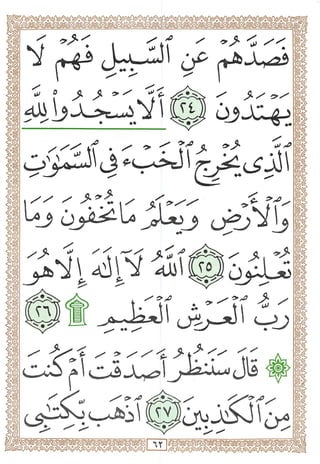 فَصَدَّهُمْ عَنِ ٱلسَّبِيلِ فَهُمْ لَا
يَهْتَدُونَ ٢٤ أَلَّا يَسْجُدُوا۟ لِلَّهِ
ٱلَّذِى يُخْرِجُ ٱلْخَبْءَ فِى ٱلسَّمَٰوَٰتِ
وَٱلْأَرْضِ وَيَعْلَمُ مَا تُخْفُونَ وَمَا
تُعْلِنُونَ ٢٥ ٱللَّهُ لَآ إِلَٰهَ إِلَّا هُوَ
رَبُّ ٱلْعَرْشِ ٱلْعَظِيمِ ۩ ٢٦
۞ قَالَ سَنَنظُرُ أَصَدَقْتَ أَمْ كُنتَ
مِنَ ٱلْكَٰذِبِينَ ٢٧ ٱذْهَب بِّكِتَٰبِى
٦٢